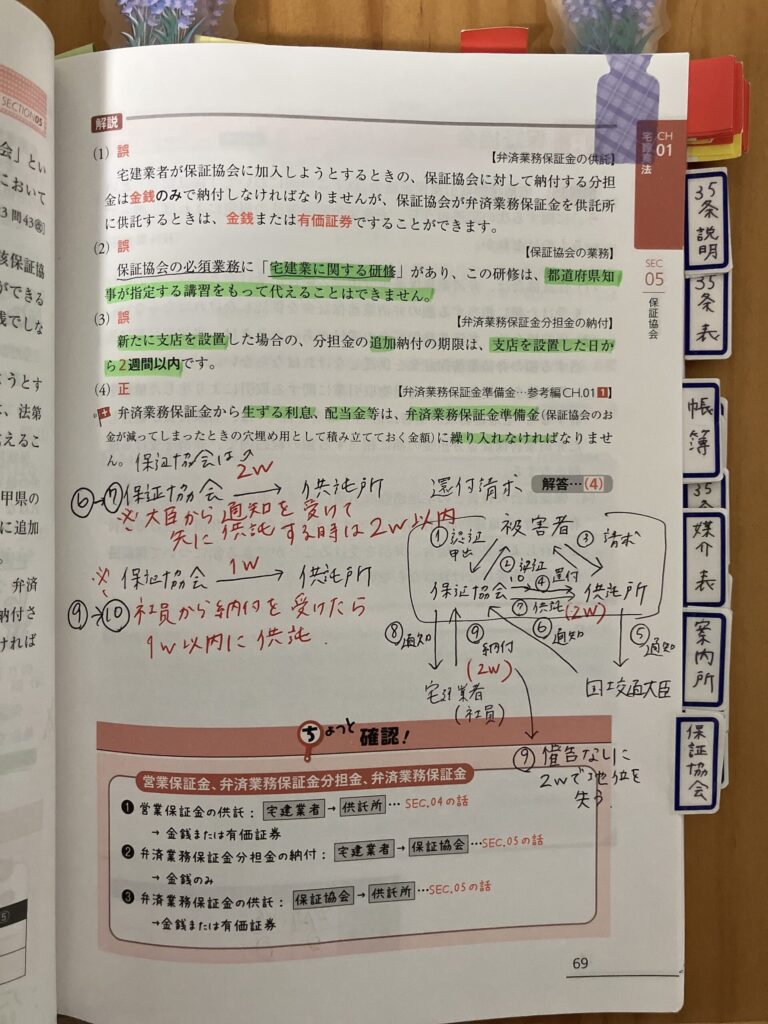 SECTION05
会」とい
において
3 問43改】
該保証協
ができる
残でしな
ようとす
は、法第
えるこ
甲県の
に追加
弁済
納付さ
ければ
⑤
解説
(1) 誤
【弁済業務保証金の供託】
宅建業者が保証協会に加入しようとするときの、保証協会に対して納付する分担
金は金銭のみで納付しなければなりませんが、保証協会が弁済業務保証金を供託所
に供託するときは、金銭または有価証券ですることができます。
(2) 誤
【保証協会の業務】
保証協会の必須業務に「宅建業に関する研修」があり、この研修は、都道府県知
事が指定する講習をもって代えることはできません。
(3) 誤
【弁済業務保証金分担金の納付】
新たに支店を設置した場合の、分担金の追加納付の期限は、支店を設置した日か
ら2週間以内です。
(4) 正
【弁済業務保証金準備金…参考編 CH.01 1】
弁済業務保証金から生ずる利息、配当金等は、弁済業務保証金準備金(保証協会のお
金が減ってしまったときの穴埋め用として積み立てておく金額)に繰り入れなければなりませ
ん。保証協会は
解答…(4)
2W
⑥→⑦保証協会 → 供託所
※大臣から通知を受けて
先に供託する時は2W以内
1W
※保証協会 → 供託所
⑨→⑩社員から納付を受けたら
1W以内に供託.
還付請求
被害者
①認証
申出
②認証
③請求
10
④還付
保証協会
供託所
⑦供託(2W)
⑧通知
⑨納付
(2W)
⑥通知
⑤通知
宅建業者
(社員)
国土交通大臣
⑨催告なしに
2Wで地位を
失う.
ちょっと確認!
営業保証金、弁済業務保証金分担金、弁済業務保証金
❶ 営業保証金の供託: 宅建業者→供託所… SEC.04の話
→ 金銭または有価証券
❷ 弁済業務保証金分担金の納付: 宅建業者→保証協会…SEC.05の話
→ 金銭のみ
❸ 弁済業務保証金の供託: 保証協会→供託所…SEC.05の話
→金銭または有価証券
69
CH
01
宅建業法
SEC
05
保証協会
35条説明
35条表
帳簿
35
媒介表
案内所
保証協会